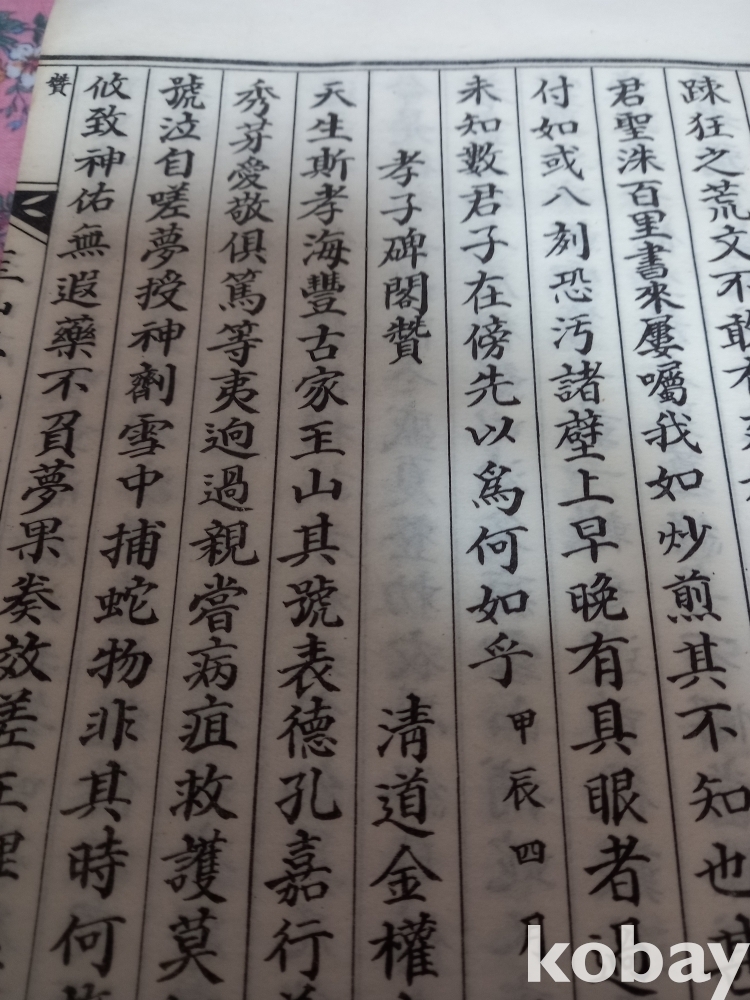 踈狂之荒文不敢
君聖洙百里書來屢囑我如炒煎其不知也
付如或八刻恐汚諸壁上早晚有具眼者
未知數君子在傍先以爲何如乎 甲辰四月
孝子碑閣贊 淸道金權
天生斯孝海豐古家玉山其號表德孔嘉行
秀芽愛敬俱篤等夷逈過親嘗病疽救護莫
號泣自嗟夢授神劑雪中捕蛇物非其時何
攸致神佑無遐藥不負夢果奏效差
贊
kobay